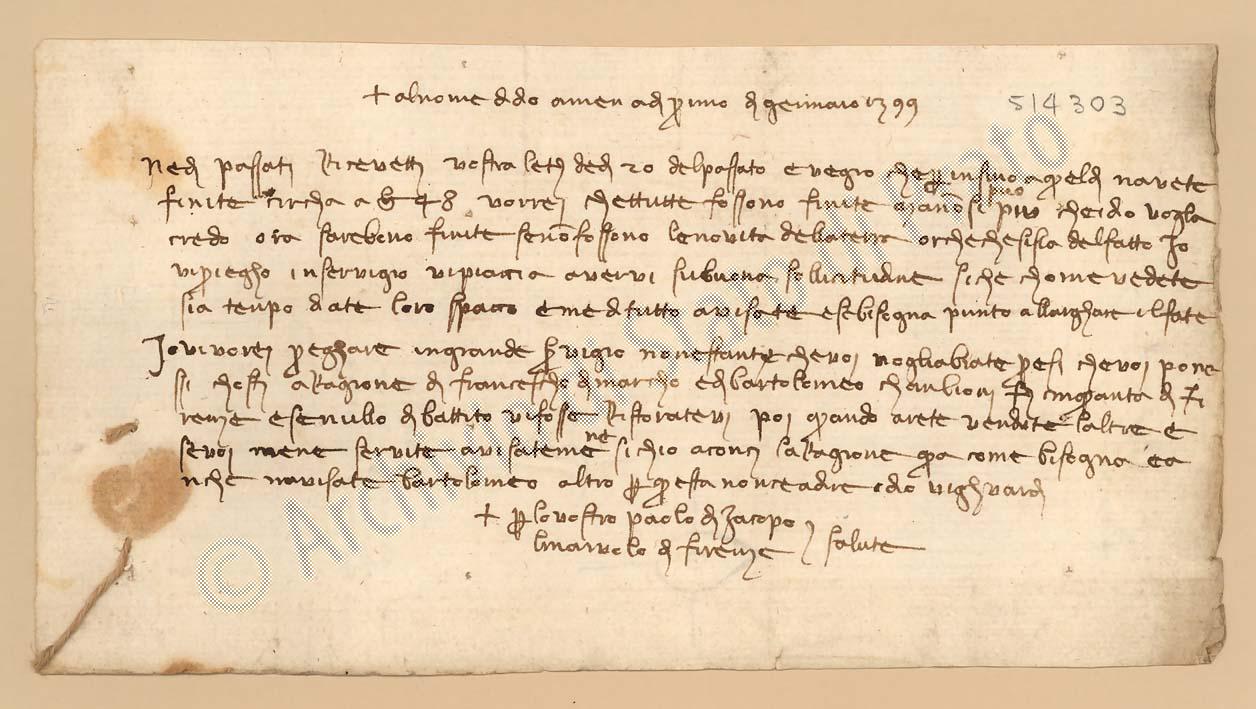 + al nome d dio amen a dì primo di gennaio 1399
514303
Ne dì passati Ricevetti vostra lett de dì 20 del passato e vegio che per insino a quel dì navete
finite circha a 48 vorrei chettutte fossono finite più che dio vogla
credo ora sarebono finite se non fossono le novità della terra or che che si sia del fatto Io
vi priegho in servigio vi piaccia avervi su buona sollicitudine si che chome vedete
sia tenpo date loro spaccio e me d tutto avisate e se bisogna punto allarghare il fate
Io vi vorei preghare in grande servigio non estante che voi nogl abiate presi che voi pone
ssi chosti a Ragione di Franciescho di Marcho e di Bartolomeo Chanbioni f cinquanta di Fi
renze e se nullo di battito vi fosse Ristoratevi poi quando arete vendute l altre e
se voi me ne servite avisatemene si chio aconci la Ragione qua come bisogna e a
nche navisate Bartolomeo altro per questa non ce a dire idio vi ghuardi
+ per lo vostro Paolo di Iacopo
linaiuolo di Firenze salute
© Archivio di Stato di Prato